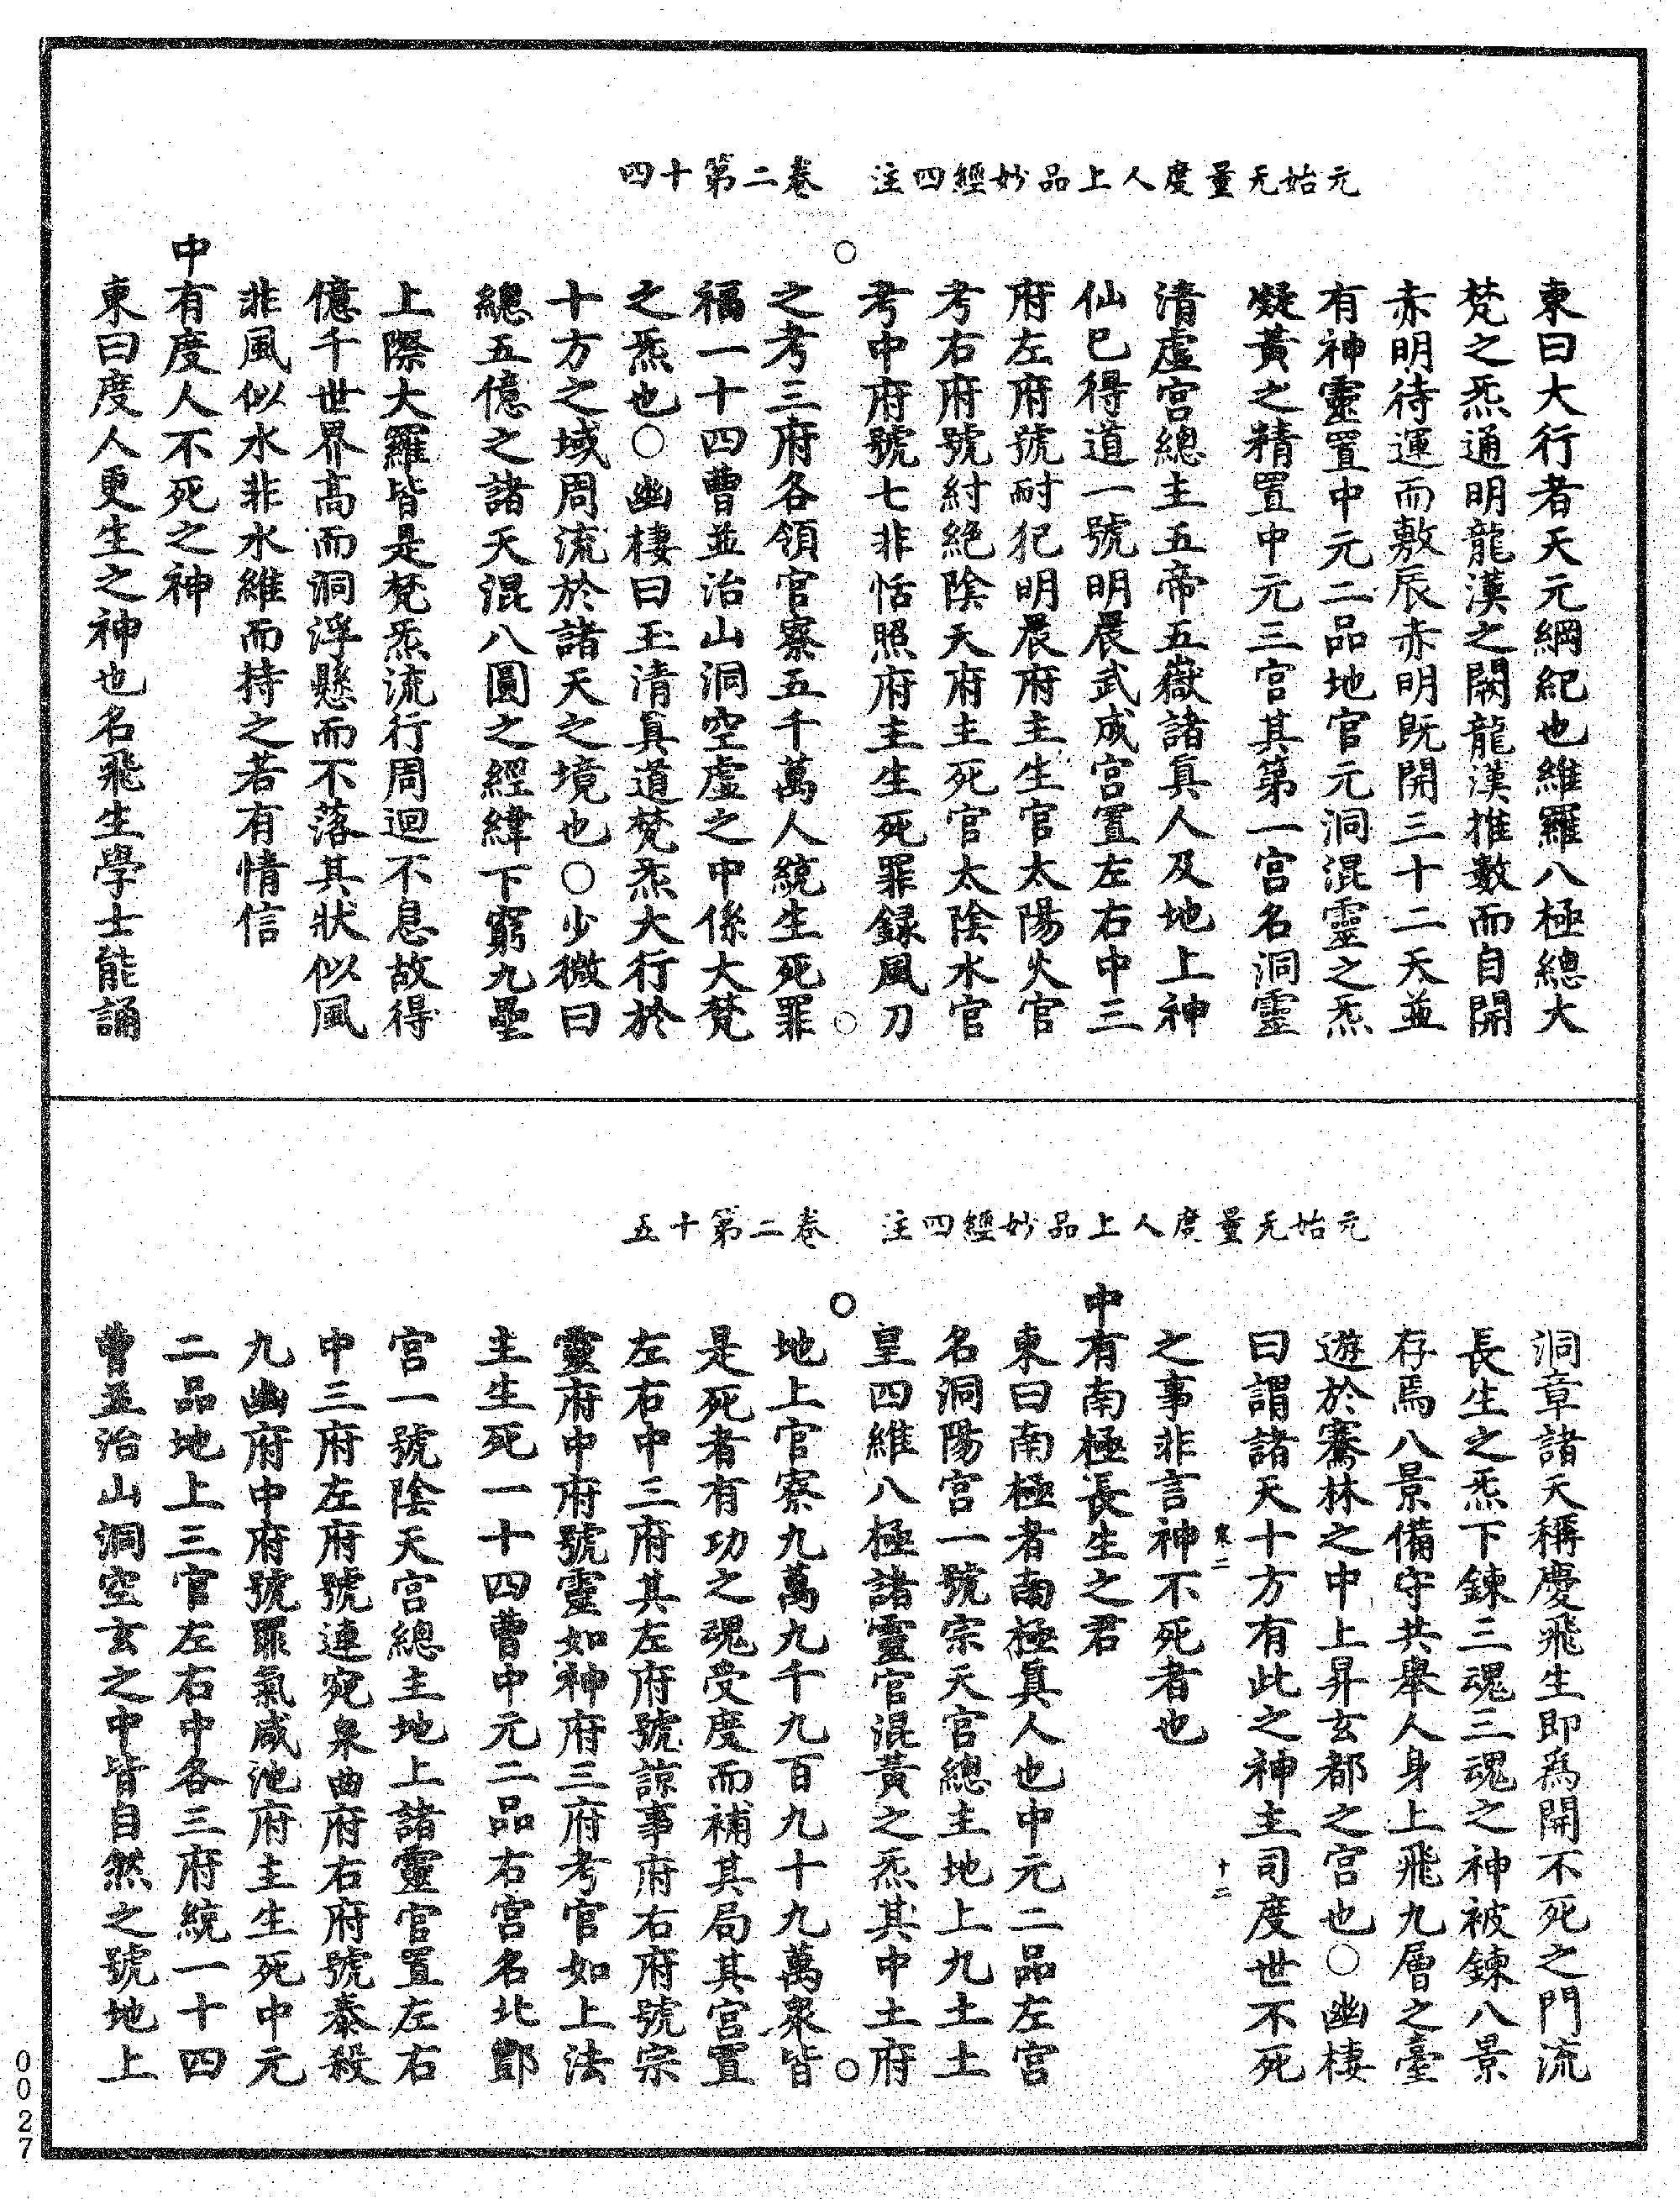 元始无量度人上品妙經四注　卷二第十四
東曰大行者天元綱紀也維羅八極總大
梵之炁通明龍漢之闕龍漢推數而自開
赤明待運而敷辰赤明既開三十二天並
有神靈置中元二品地官元洞混靈之炁
凝黃之精置中元三宮其第一宮名洞靈
清虛宮總主五帝五嶽諸真人及地上神
仙已得道一號明晨武成宮置左右中三
府左府號耐犯明晨府主生官太陽火官
考右府號紂絕陰天府主死官太陰水官
考中府號七非恬照府主生死罪錄風刀
之考三府各領官寮五千萬人統生死罪
福一十四曹並治山洞空虛之中係大梵
之炁也○幽棲曰玉清真道梵炁大行於
十方之域周流於諸天之境也○少微曰
總五億之諸天混八圓之經緯下窮九壘
上際大羅皆是梵炁流行周迴不息故得
億千世界高而洞浮懸而不落其狀似風
非風似水非水維而持之若有情信
中有度人不死之神
東曰度人更生之神也名飛生學士能誦
元始无量度人上品妙經四注　卷二第十五
洞章諸天稱慶飛生即為開不死之門流
長生之炁下鍊三魂三魂之神被鍊八景
存焉八景備守共舉人身上飛九層之臺
遊於騫林之中上昇玄都之宮也○幽棲
曰謂諸天十方有此之神主司度世不死
之事非言神不死者也
中有南極長生之君
東曰南極者南極真人也中元二品左宮
名洞陽宮一號宗天宮總主地上九土土
皇四維八極諸靈官混黃之炁其中土府
地上官寮九萬九千九百九十九萬眾皆
是死者有功之魂受度而補其局其宮置
左右中三府其左府號諒事府右府號宗
靈府中府號靈如神府三府考官如上法
主生死一十四曹中元二品右宮名北酆
宮一號陰天宮總主地上諸靈官置左右
中三府左府號連宛泉曲府右府號泰殺
九幽府中府號罪氣咸池府主生死中元
二品地上三官左右中各三府統一十四
曹並治山洞空玄之中皆自然之號地上
十二
0027